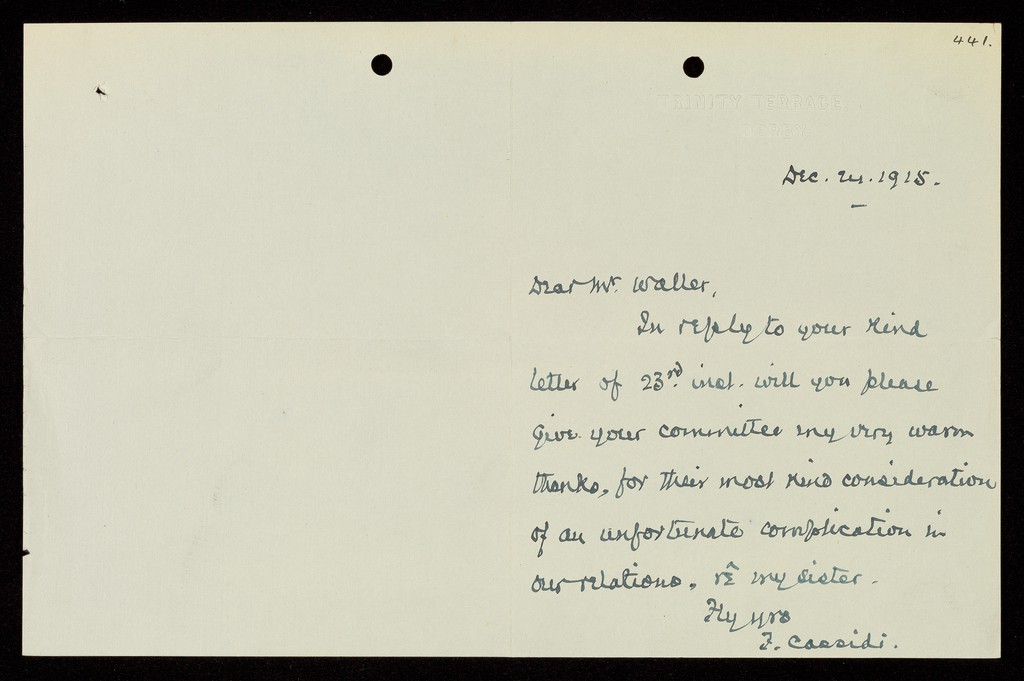 441.
TRINITY TERRACE,
DERBY.
Dec. 24. 1915.
Dear Mr. Waller,
In reply to your kind
letter of 23rd. inst. will you please
give your committee my very warm
thanks, for their most kind consideration
of an unfortunate complication in
our relations, re my sister.
Ffly yrs
F. Cassidi.